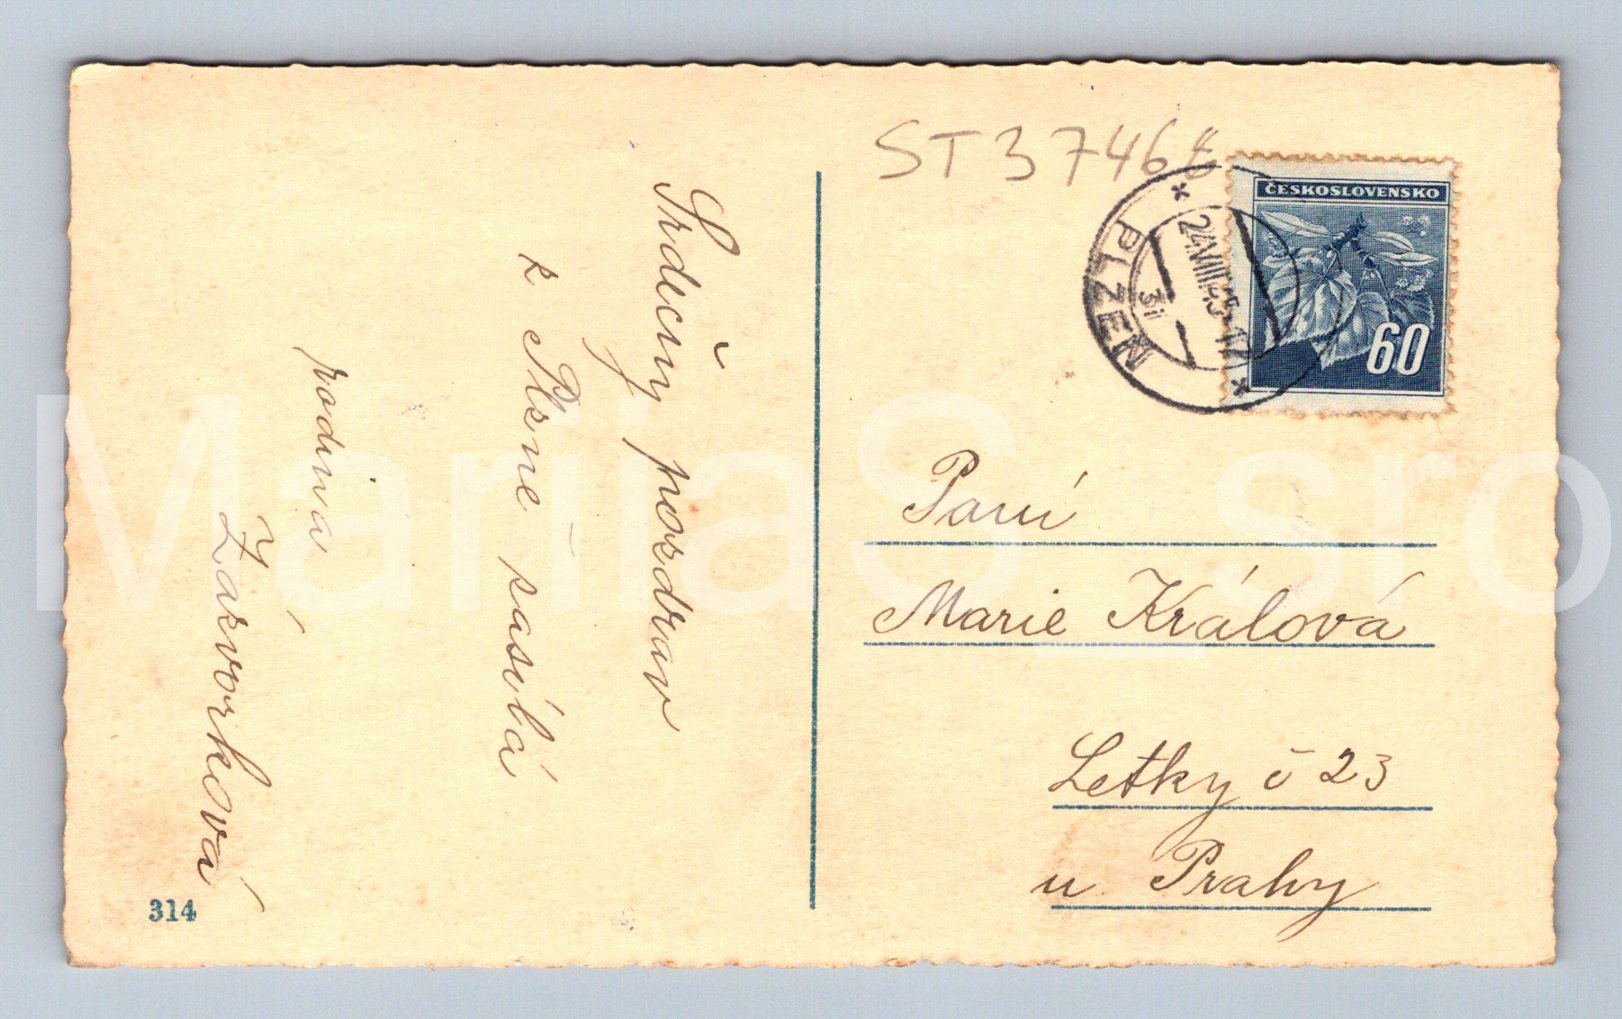 ST 3746
ČESKOSLOVENSKO
60
PLZEŇ
24.VIII.45-17
Srdečný pozdrav
z Plzně zasílá
rodina
Závorková
Paní
Marie Králová
Letky č 23
u Prahy
314
MarijaS sro